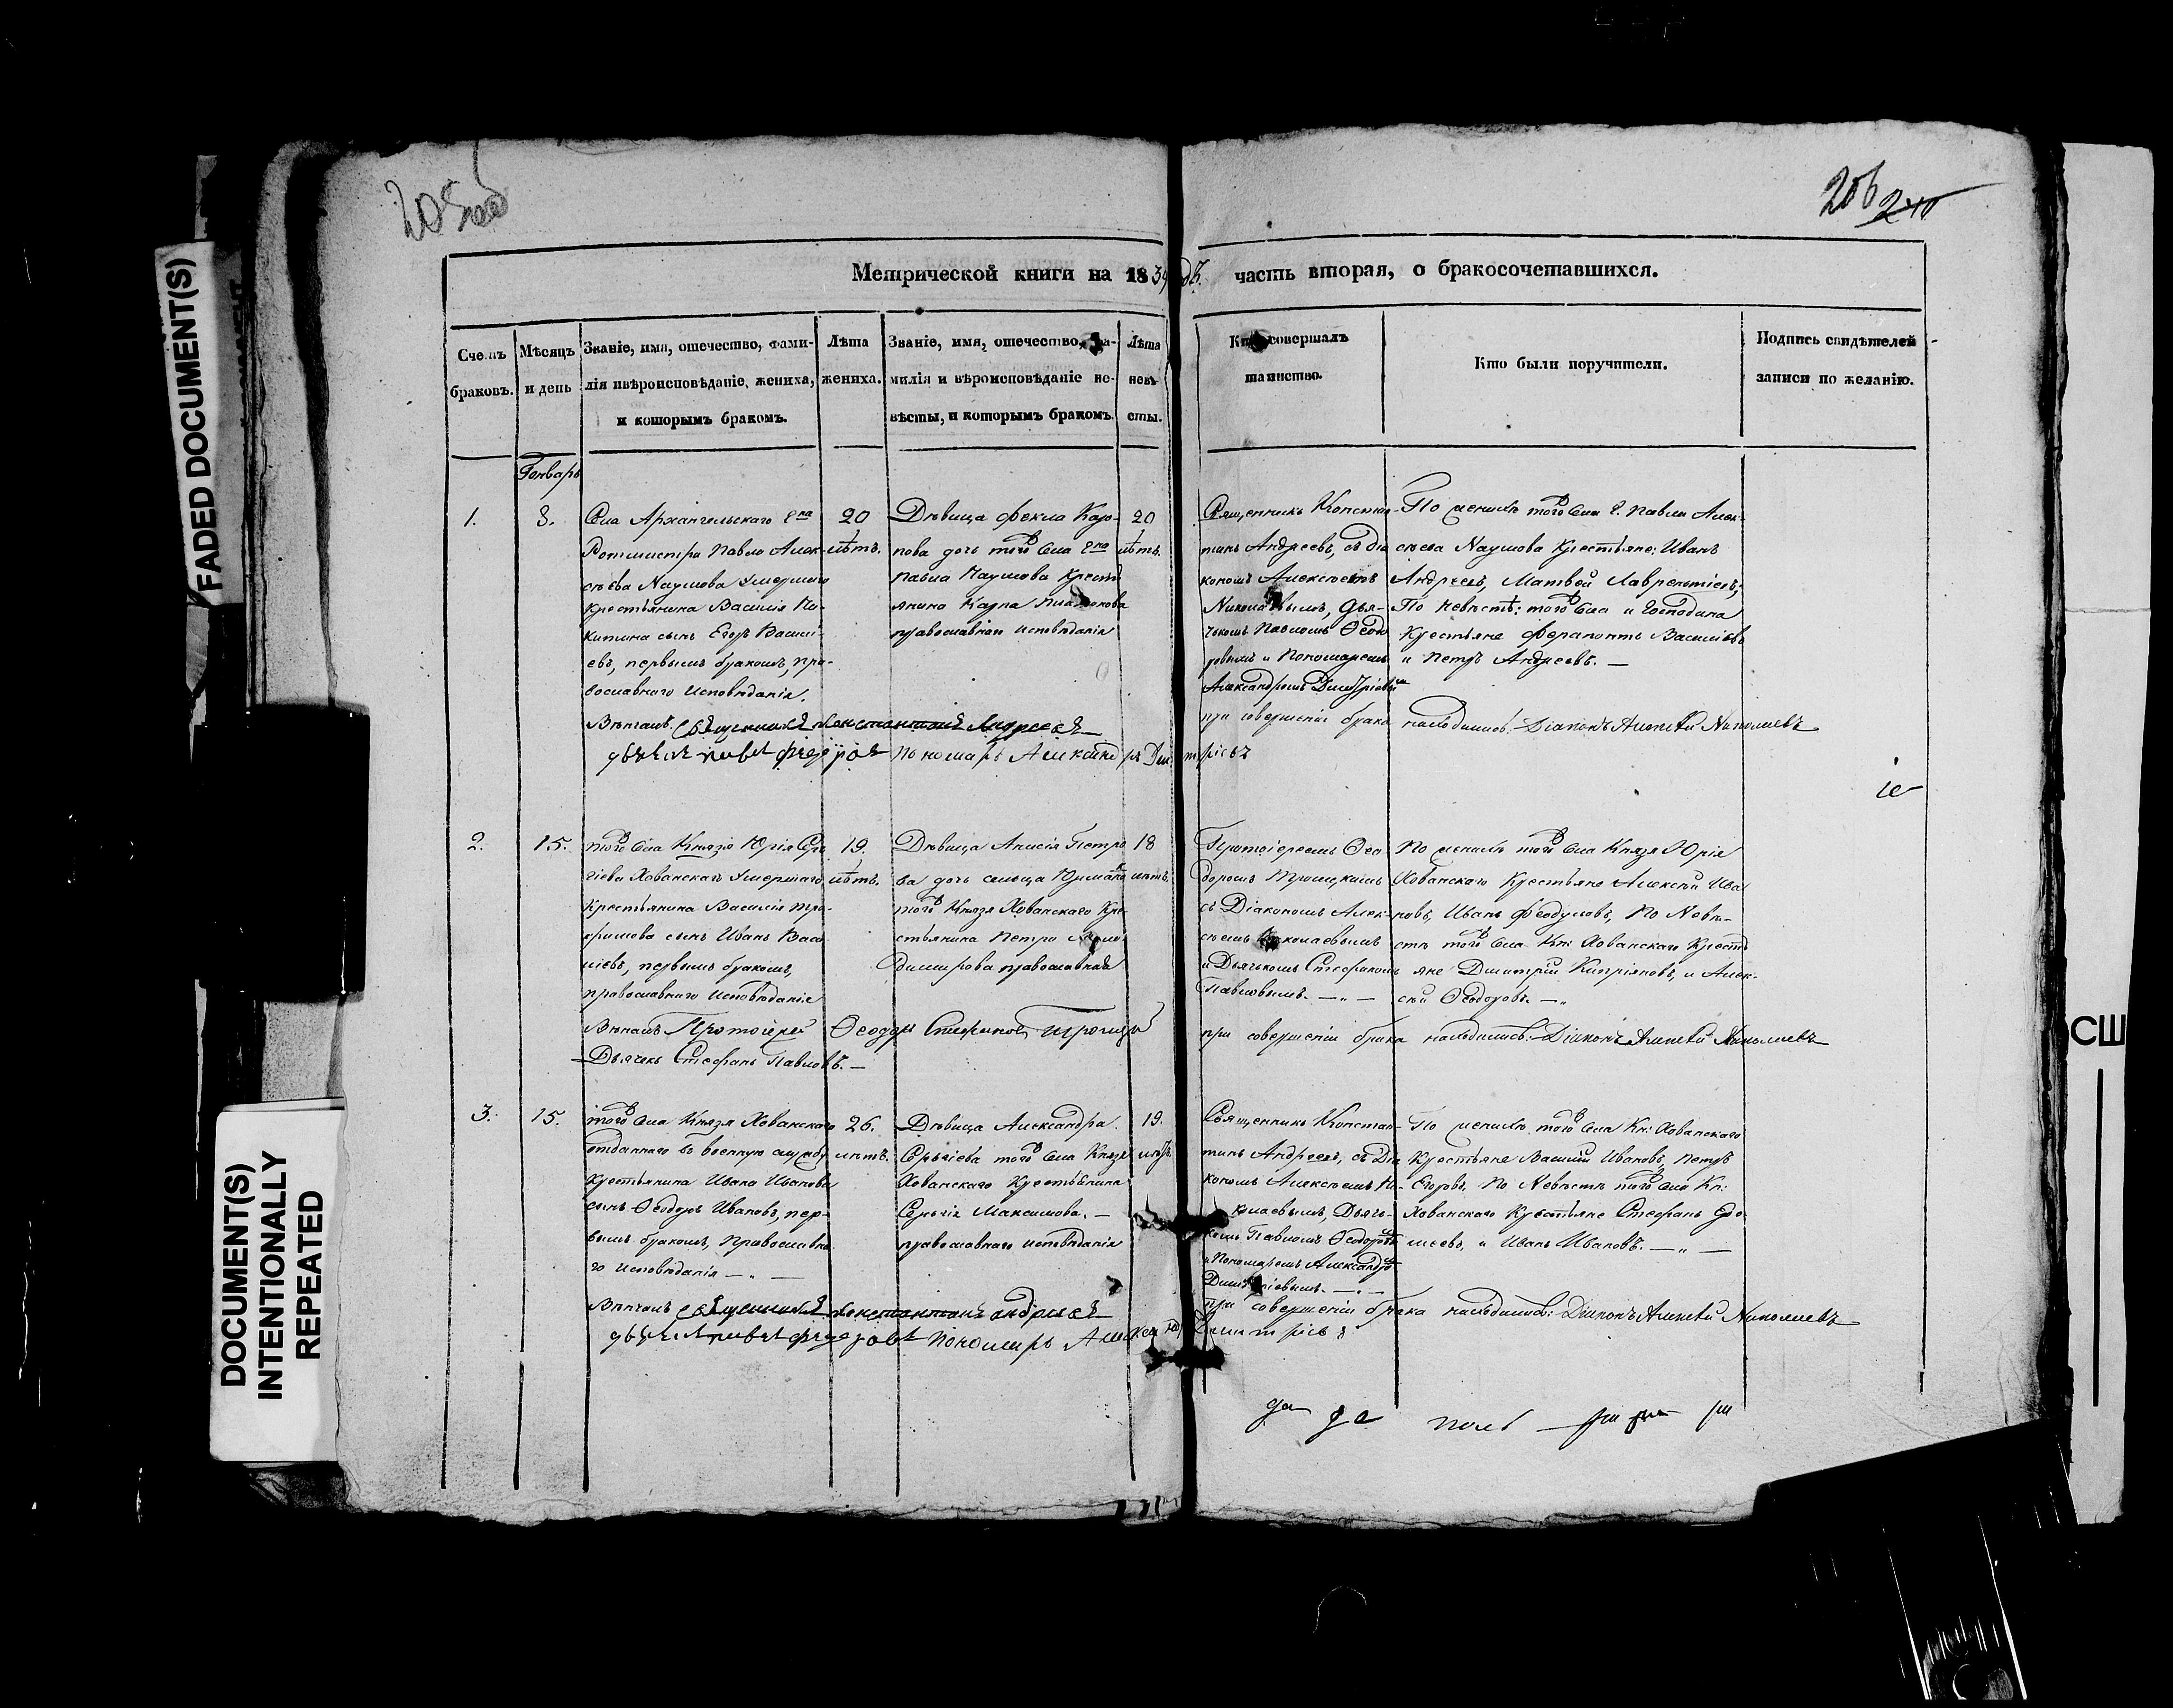 206
Метрической книги на 1834
часть вторая, о бракосочетавшихся.
Счетъ браковъ.
Мѣсяцъ и день
Званіе, имя, отечество, фами-
лія ивѣроисповѣданіе, жениха,
и которымъ бракомъ.
Лѣта
жениха.
Званіе, имя, отечество, фа-
милія и вѣроисповѣданіе не-
вѣсты, и которымъ бракомъ.
Лѣта
невѣ
сты.
Кто совершалъ
таинство.
Кто были поручители.
Подпись свидѣтелей
записи по желанію.
Генварь
1.
8.
Села Архангельскаго Гна
Ротмистра Павла Алек-
сѣева Наумова умершаго
Крестьянина Василія Ни-
китина сынъ Егоръ Василі-
евъ, первымъ бракомъ, пра-
вославнаго исповѣданія.
20
лѣтъ.
Дѣвица Фекла Кар-
пова дочь того села Гна
Павла Наумова Кресть
янина Карпа
православнаго исповѣданія
20
лѣтъ.
Священникъ Констан-
тинъ Андреевъ, съ Діа
кономъ Алексѣемъ
Николаевымъ, Дья-
чкомъ Павломъ Ѳедо
ровымъ и Пономаремъ
Александромъ Дмитріевы
По женихѣ того села Г. Павла Алек-
сѣева Наумова Крестьяне: Иванъ
Андреевъ, Матвей Лаврентіевъ;
По невѣстѣ: того села и Господина
Крестьяне Ферапонтъ Васильевъ
и Петръ Андреевъ. —
Вѣнчалъ священникъ Константинъ Андреевъ
при совершеніи брака находились: Діаконъ Алексѣй Николаевъ
дьячекъ Павелъ Федоровъ Пономарь Александръ Дмитріевъ
2.
15.
того села Князя Юрія Сер
гіева Хованскаго умершаго
Крестьянина Василія Тро-
фимова сынъ Иванъ Васи
ліевъ, первымъ бракомъ,
православнаго исповѣданія
19.
лѣтъ.
Дѣвица Анисія Петро
ва дочь сельца
того Князя Хованскаго Кре-
стьянина Петра
православная
18
лѣтъ.
Протоіереемъ Ѳео
доромъ Троицкимъ
съ Діакономъ Алек-
сѣемъ Николаевымъ
и Дьячкомъ Стефаномъ
Павловымъ. — „ —
По женихѣ того села Князя Юрія
Хованскаго Крестьяне Алексѣй Ива
новъ, Иванъ Феодуловъ, По Невѣ-
стѣ того села Кн: Хованскаго Кресть
яне Дмитрій Кипріяновъ, и Алек-
сѣй Ѳеодоровъ. — „
Вѣнчалъ Протоіерей Ѳеодоръ Стефановъ Троицкій
при совершеніи брака находились: Діаконъ Алексѣй Николаевъ
Дьячекъ Стефанъ Павловъ. —
3.
15.
того села Князя Хованскаго
отданнаго въ военную службу
Крестьянина Ивана Иванова
сынъ Ѳеодоръ Ивановъ, пер-
вымъ бракомъ, Православна
го исповѣданія — „ —
26.
лѣтъ.
Дѣвица Александра
Сергіева того села Князя
Хованскаго Крестьянина
Сергія Максимова. —
православнаго исповѣданія
19.
лѣтъ
Священникъ Констан-
тинъ Андреевъ, съ Діа
кономъ Алексѣемъ Ни-
колаевымъ, Дьяч-
комъ Павломъ Ѳедоровым
и Пономаремъ Александром
Дмитріевымъ. — „ —
По женихѣ того села Кн: Хованскаго
Крестьяне Василій Ивановъ, Петръ
Егоровъ, По Невѣстѣ того села Кн:
Хованскаго Крестьяне Стефанъ
и Иванъ Ивановъ. — „ —
Вѣнчалъ священникъ Константинъ Андреевъ
при совершеніи брака находились: Діаконъ Алексѣй Николаевъ
дьячекъ Павелъ Федоровъ Пономарь Александръ Дмитріевъ
да да
FADED DOCUMENT(S)
DOCUMENT(S)
INTENTIONALLY
REPEATED
СШ